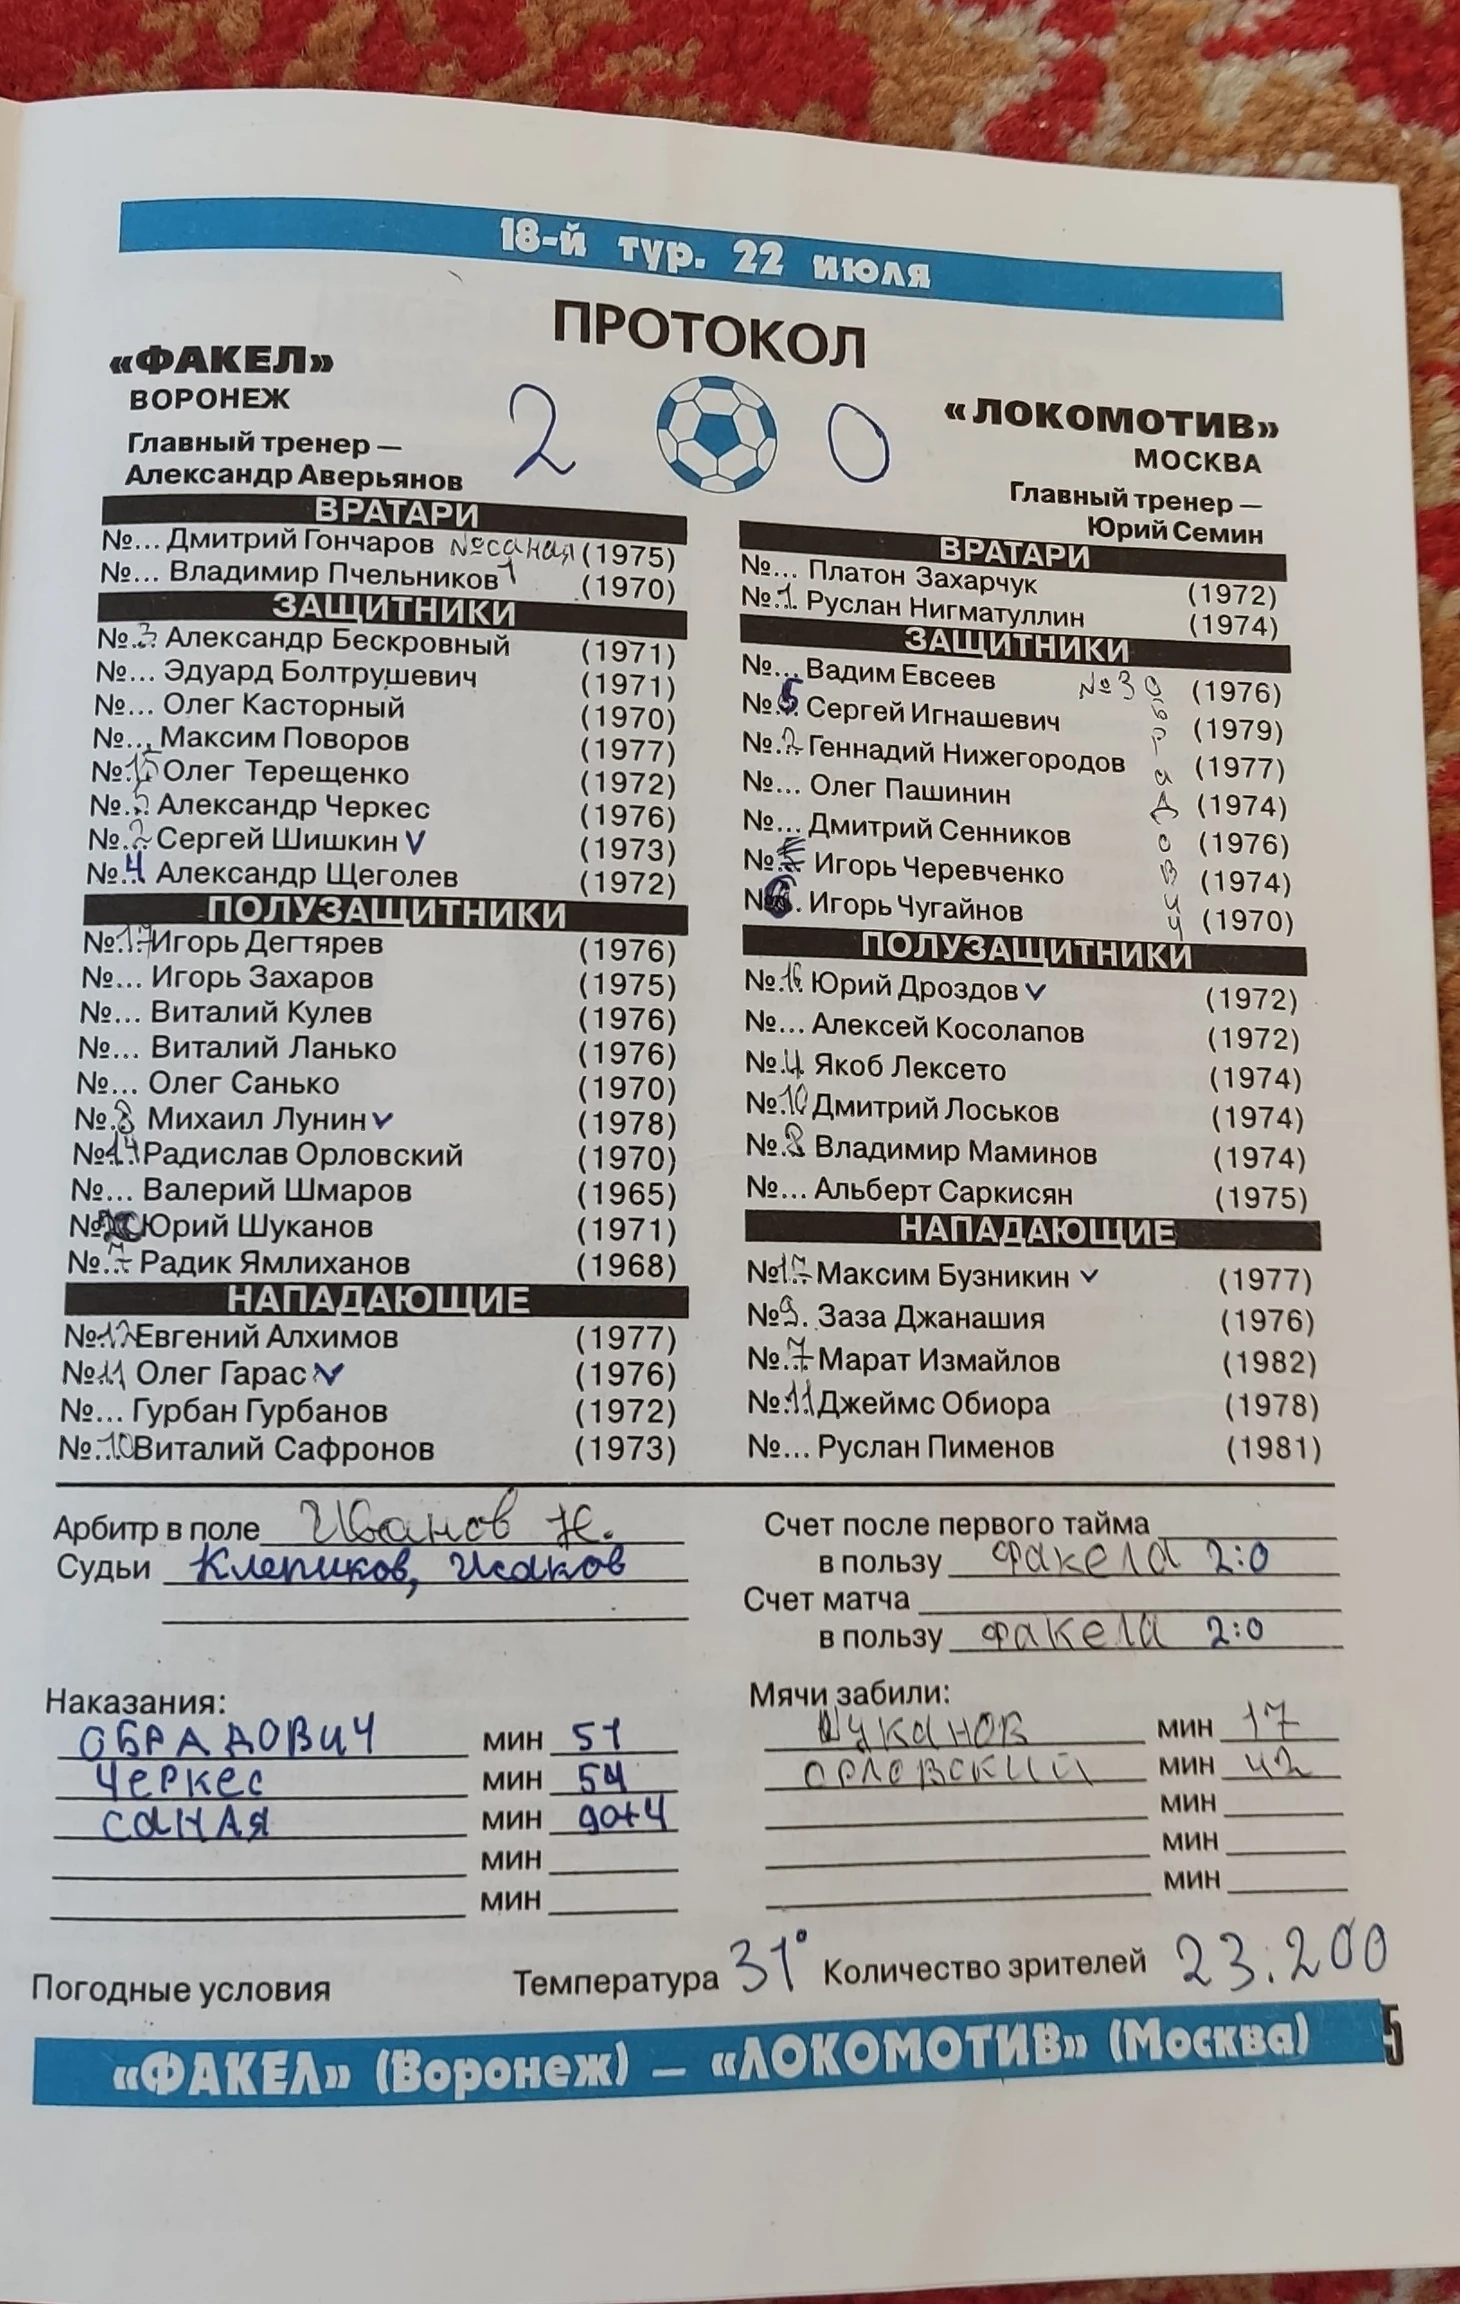 18-й тур. 22 июля
ПРОТОКОЛ
«ФАКЕЛ»
ВОРОНЕЖ
Главный тренер —
Александр Аверьянов
2
0
«ЛОКОМОТИВ»
МОСКВА
Главный тренер —
Юрий Семин
ВРАТАРИ
№... Дмитрий Гончаров № Саная (1975)
№... Владимир Пчельников 1 (1970)
ЗАЩИТНИКИ
№ 3 Александр Бескровный (1971)
№... Эдуард Болтрушевич (1971)
№... Олег Касторный (1970)
№... Максим Поворов (1977)
№ 15 Олег Терещенко (1972)
№ 5 Александр Черкес (1976)
№ 2 Сергей Шишкин V (1973)
№ 4 Александр Щеголев (1972)
ПОЛУЗАЩИТНИКИ
№ 17 Игорь Дегтярев (1976)
№... Игорь Захаров (1975)
№... Виталий Кулев (1976)
№... Виталий Ланько (1976)
№... Олег Санько (1970)
№ 8 Михаил Лунин V (1978)
№ 14 Радислав Орловский (1970)
№... Валерий Шмаров (1965)
№ Юрий Шуканов (1971)
№ 7 Радик Ямлиханов (1968)
НАПАДАЮЩИЕ
№ 12 Евгений Алхимов (1977)
№ 11 Олег Гарас V (1976)
№... Гурбан Гурбанов (1972)
№ 10 Виталий Сафронов (1973)
ВРАТАРИ
№... Платон Захарчук (1972)
№ 1 Руслан Нигматуллин (1974)
ЗАЩИТНИКИ
№... Вадим Евсеев (1976)
№ 5 Сергей Игнашевич (1979)
№ 2 Геннадий Нижегородов (1977)
№... Олег Пашинин (1974)
№... Дмитрий Сенников (1976)
№ Игорь Черевченко (1974)
№ 6 Игорь Чугайнов (1970)
№ 3 Обрадович
ПОЛУЗАЩИТНИКИ
№ 16 Юрий Дроздов V (1972)
№... Алексей Косолапов (1972)
№ 4 Якоб Лексето (1974)
№ 10 Дмитрий Лоськов (1974)
№ 8 Владимир Маминов (1974)
№... Альберт Саркисян (1975)
НАПАДАЮЩИЕ
№ 17 Максим Бузникин V (1977)
№ 9. Заза Джанашия (1976)
№ 7 Марат Измайлов (1982)
№ 11 Джеймс Обиора (1978)
№... Руслан Пименов (1981)
Арбитр в поле Иванов Н.
Судьи Клепиков, Исаков
Счет после первого тайма
в пользу Факела 2:0
Счет матча
в пользу Факела 2:0
Наказания:
ОБРАДОВИЧ мин 51
ЧЕРКЕС мин 54
САНАЯ мин 90+4
мин
мин
Мячи забили:
Шуканов мин 17
Орловский мин 42
мин
мин
мин
Погодные условия Температура 31° Количество зрителей 23.200
«ФАКЕЛ» (Воронеж) — «ЛОКОМОТИВ» (Москва)
5